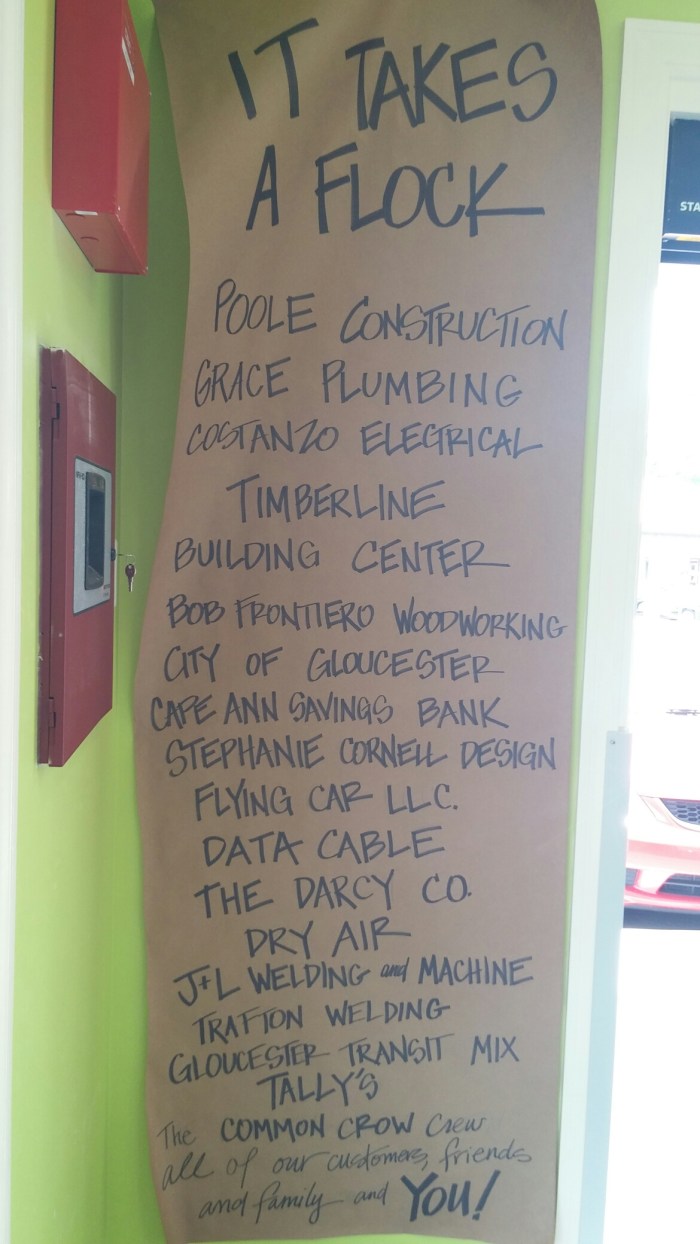 IT TAKES
A FLOCK
POOLE CONSTRUCTION
GRACE PLUMBING
COSTANZO ELECTRICAL
TIMBERLINE
BUILDING CENTER
BOB FRONTIERO WOODWORKING
CITY OF GLOUCESTER
CAPE ANN SAVINGS BANK
STEPHANIE CORNELL DESIGN
FLYING CAR LLC.
DATA CABLE
THE DARCY CO.
DRY AIR
J+L WELDING and MACHINE
TRAFTON WELDING
GLOUCESTER TRANSIT MIX
TALLY'S
The COMMON CROW Crew
all of our customers, friends
and family and YOU!
STA